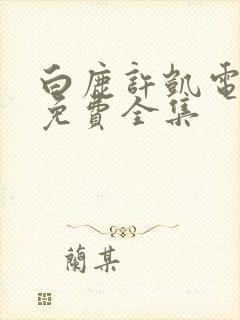 白鹿許凱電
免費全集
蘭某